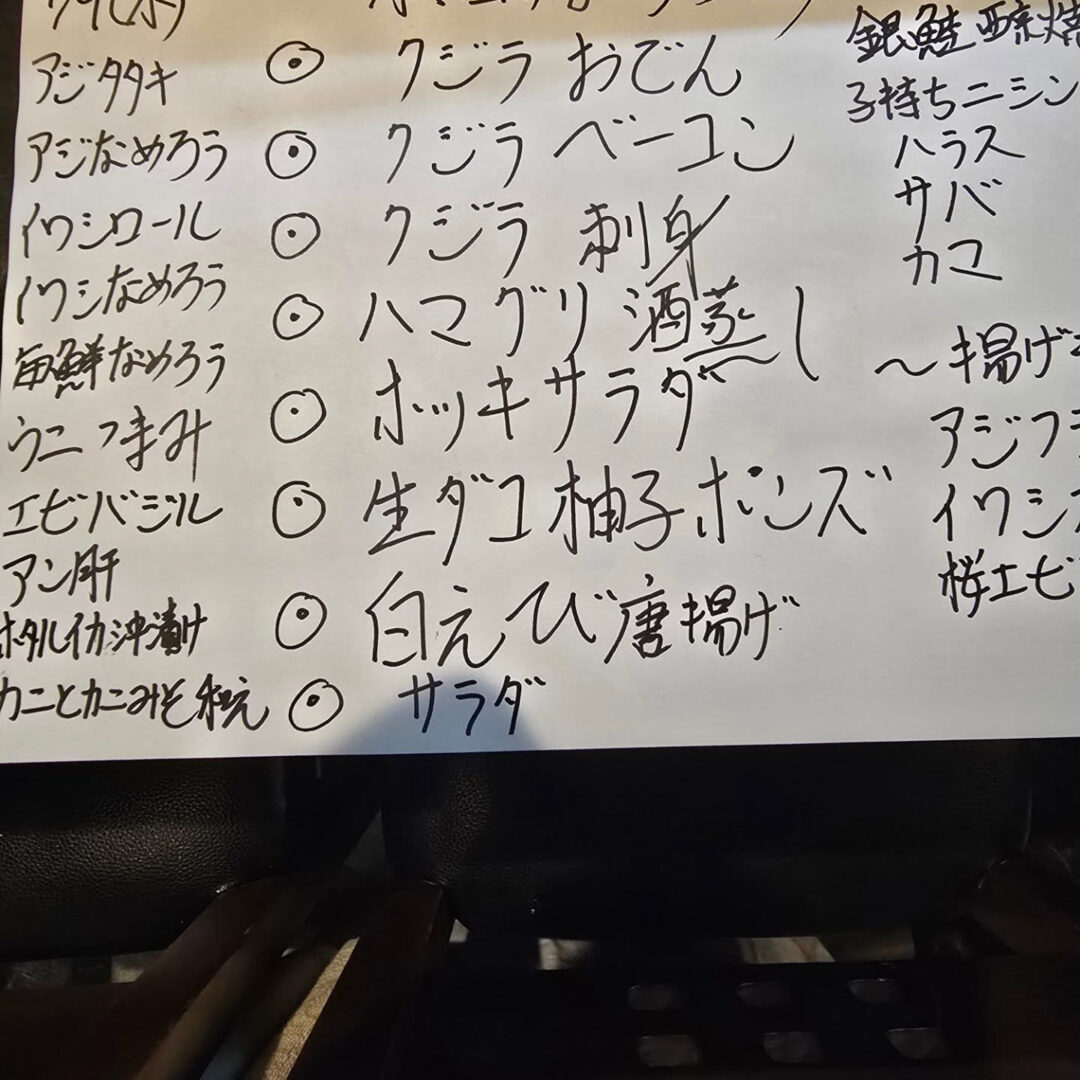 アジタタキ
アジなめろう
イワシロール
イワシなめろう
海鮮なめろう
ウニつまみ
エビバジル
アン肝
ホタルイカ沖漬け
カニとカニみそ和え
クジラ おでん
クジラ ベーコン
クジラ 刺身
ハマグリ 酒蒸し
ホッキサラダ
生ダコ柚子ポンズ
白えび唐揚げ
サラダ
銀鮭 西京焼
子持ちニシン
ハラス
サバ
カマ
〜揚げ
アジフ
イワシ
桜エビ